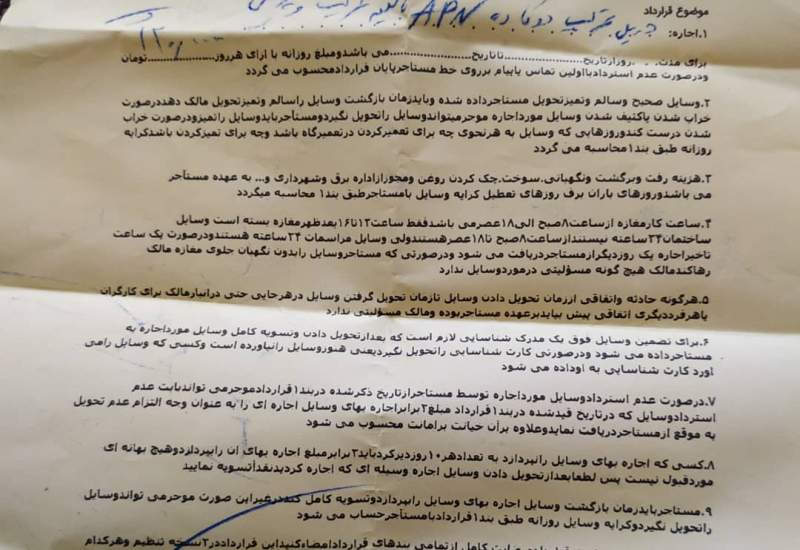 موضوع قرارداد
۱.اجاره: دریل A.P.N
برای مدت. . .روزازتاریخ.......................تاتاریخ.......................می باشدومبلغ روزانه با ازای هرروز....................تومان
ودرصورت عدم استردادبااولین تماس یاپیام برروی خط مستأجرپایان قراردادمحسوب می گردد
۲.وسایل صحیح وسالم وتمیزتحویل مستأجرداده شده وبایدزمان بازگشت وسایل راسالم وتمیزتحویل مالک دهددرصورت
خراب شدن یاکثیف شدن وسایل مورداجاره موجرمیتواندوسایل راتحویل نگیردومستأجربایدوسایل راتمیزودرصورت خراب
شدن درست کندوروزهایی که وسایل به هرنحوی چه برای تعمیرکردن درتعمیرگاه باشد وچه برای تمیزکردن باشدکرایه
روزانه طبق بند۱محاسبه می گردد
۳.هزینه رفت وبرگشت ونگهبانی.سوخت.چک کردن روغن ومجوزازاداره برق وشهرداری و... به عهده مستأجر
می باشدوروزهای باران برف روزهای تعطیل کرایه وسایل بامستأجرطبق بند۱ محاسبه میگردد
۴.ساعت کارمغازه ازساعت۸صبح الی۱۸عصرمی باشدفقط ساعت۱۲تا۱۶بعدظهرمغازه بسته است وسایل
ساختمان۲۴ساعته نیستندازساعت۸صبح تا۱۸عصرهستندولی وسایل مراسمات ۲۴ساعته هستندودرصورت یک ساعت
تاخیراجاره یک روزدیگرازمستأجردریافت می شود ودرصورتی که مستأجروسایل رابدون نگهبان جلوی مغازه مالک
رهاکندمالک هیچ گونه مسؤلیتی درموردوسایل ندارد
۵.هرگونه حادثه واتفاقی اززمان تحویل دادن وسایل تازمان تحویل گرفتن وسایل درهرجایی حتی درانبارمالک برای کارگران
یاهرفرددیگری اتفاقی پیش بیایدبرعهده مستأجربوده ومالک مسؤلیتی ندارد
۶.برای تضمین وسایل فوق یک مدرک شناسایی لازم است که بعدازتحویل دادن وتسویه کامل وسایل مورداجاره به
مستأجرداده می شود ودرصورتی کارت شناسایی راتحویل نگیردیعنی هنوزوسایل رانیاورده است وکسی که وسایل رامی
اورد کارت شناسایی به اوداده می شود
۷.درصورت عدم استردادوسایل مورداجاره توسط مستأجرازتاریخ ذکرشده دربند۱قراردادموجرمی تواندبابت عدم
استردادوسایل که درتاریخ قیدشده دربند۱قرارداد مبلغ۳برابراجاره بهای وسایل اجاره ای را به عنوان وجه التزام عدم تحویل
به موقع ازمستأجردریافت نمایدوعلاوه برآن خیانت برامانت محسوب می شود
۸.کسی که اجاره بهای وسایل رانپردازد به تعدادهر۱۰روزدیرکردباید۲برابرمبلغ اجاره بهای آن رابپردازدوهیچ بهانه ای
موردقبول نیست پس لطفابعدازتحویل دادن وسایل اجاره وسیله ای که اجاره کردیدنقدأتسویه نمایید
۹.مستأجربایدزمان بازگشت وسایل اجاره بهای وسایل رابپردازدوتسویه کامل کنددرغیراین صورت موجرمی تواندوسایل
راتحویل نگیردوکرایه وسایل روزانه طبق بند۱قراردادبامستأجرحساب می شود
کامل ازتمامی بندهای قراردادامضاءکنیداین قرارداددر۲نسخه تنظیم وهرکدام